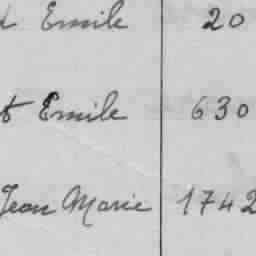 Emile 20
t Emile 630
Jean Marie 1742